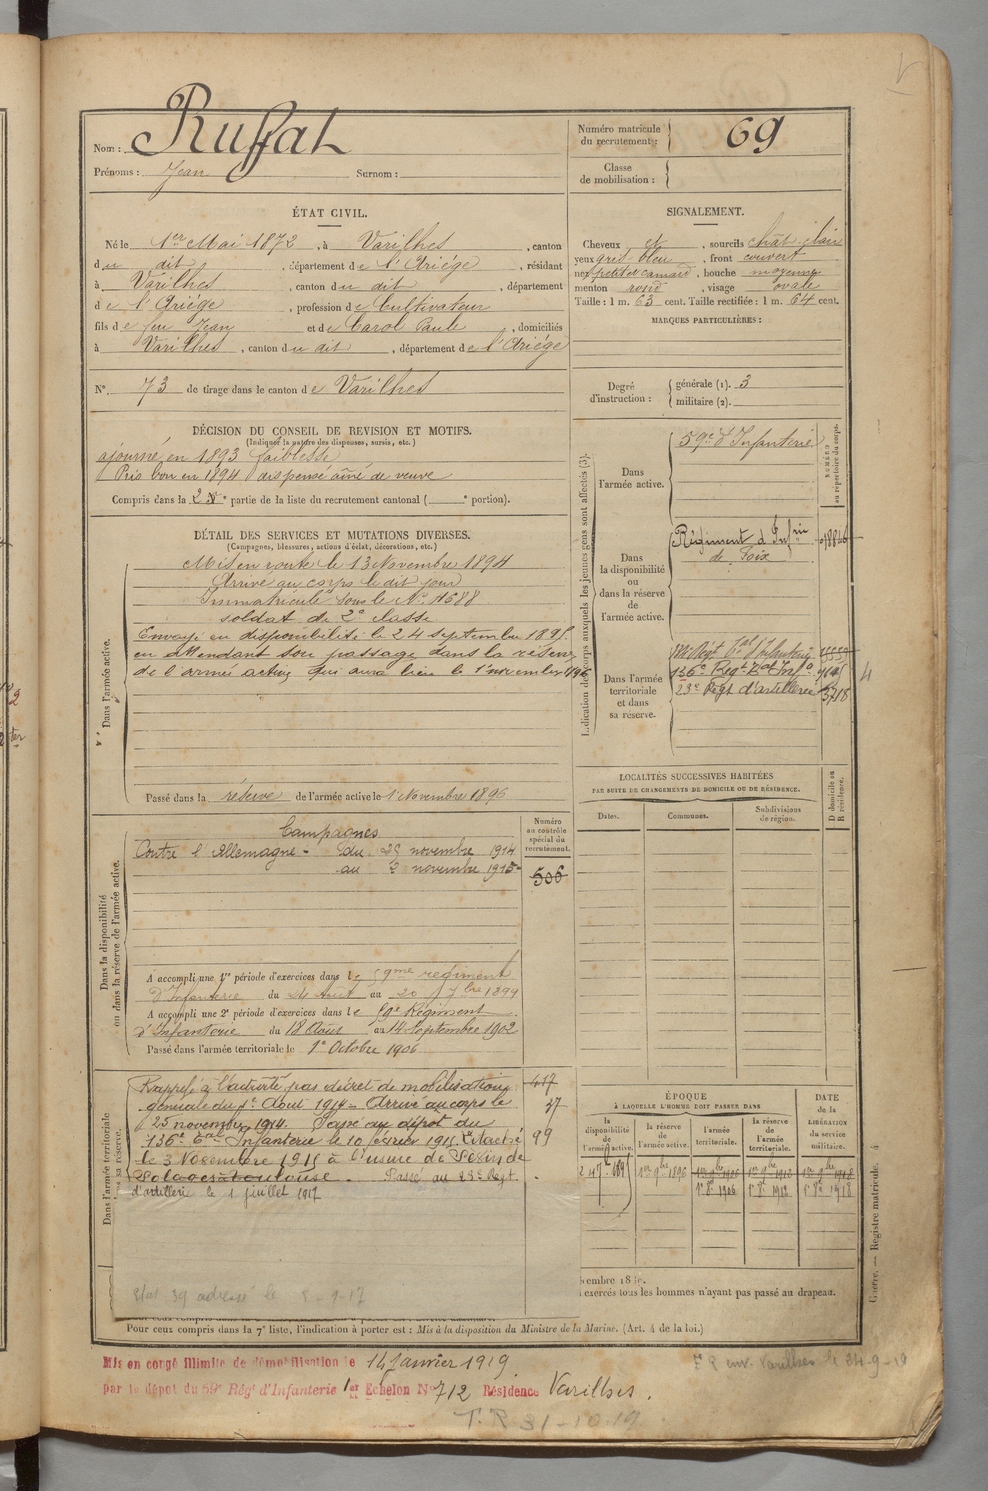 Nom : Ruffat
Prénoms : Jean Surnom :
Numéro matricule du recrutement : 69
Classe de mobilisation :
ÉTAT CIVIL.
Né le 1er Mai 1872, à Varilhes, canton
du dit, département de l'Ariége, résidant
à Varilhes, canton du dit, département
de l'Ariége, profession de Cultivateur
fils de feu Jean et de Carol Paule, domiciliés
à Varilhes, canton du dit, département de l'Ariége
N° 73 de tirage dans le canton de Varilhes
SIGNALEMENT.
Cheveux et, sourcils chât. clair
yeux gris bleu, front couvert
nez petit et camard, bouche moyenne
menton rond, visage ovale
Taille : 1 m. 63 cent. Taille rectifiée : 1 m. 64 cent.
MARQUES PARTICULIÈRES :
Degré d'instruction : générale (1). 3
militaire (2).
DÉCISION DU CONSEIL DE REVISION ET MOTIFS.
(Indiquer la nature des dispenses, sursis, etc.)
ajourné en 1893 faiblesse
Pris bon en 1894 dispensé aîné de veuve
Compris dans la 2e partie de la liste du recrutement cantonal ( e portion).
DÉTAIL DES SERVICES ET MUTATIONS DIVERSES.
(Campagnes, blessures, actions d'éclat, décorations, etc.)
Dans l'armée active.
Mis en route le 13 Novembre 1894
Arrivé au corps le dit jour
Immatriculé sous le N° 4688
soldat de 2e classe
Envoyé en disponibilité le 24 septembre 1895
en attendant son passage dans la réserve
de l'armée active qui aura lieu le 1er novembre 1896
Passé dans la réserve de l'armée active le 1er Novembre 1896
Indication des corps auxquels les jeunes gens sont affectés (3).
NUMÉRO au répertoire du corps.
Dans l'armée active.
59e d'Infanterie
Dans la disponibilité ou dans la réserve de l'armée active.
Régiment d'Infrie
de Foix
Dans l'armée territoriale et dans sa réserve.
Régt tal d'Infanterie
136e Régt Tal Infie
23e Régt d'artillerie 3718
LOCALITÉS SUCCESSIVES HABITÉES
PAR SUITE DE CHANGEMENTS DE DOMICILE OU DE RÉSIDENCE.
Dates. Communes. Subdivisions de région. D domicile ou R résidence.
Dans la disponibilité ou dans la réserve de l'armée active.
Numéro au contrôle spécial du recrutement.
506
Campagnes
Contre l'Allemagne - du 25 novembre 1914
au 2 novembre 1915
A accompli une 1re période d'exercices dans le 59me régiment
d'Infanterie du 24 Août au 20 7bre 1899
A accompli une 2e période d'exercices dans le 59e Régiment
d'Infanterie du 18 Août au 14 Septembre 1902
Passé dans l'armée territoriale le 1er Octobre 1906
Dans l'armée territoriale et dans sa réserve.
Rappelé à l'activité par décret de mobilisation
générale du 1er Août 1914 - Arrivé au corps le
25 novembre 1914. Passé au dépot du
136e tal Infanterie le 10 février 1915. Détaché
le 3 Novembre 1915 à l'usine de
à Toulouse. Passé au 23e Régt
d'artillerie le 1 juillet 1917
417
37
99
Etat 39 adressé le 8-9-17
ÉPOQUE
À LAQUELLE L'HOMME DOIT PASSER DANS
la disponibilité de l'armée active.
la réserve de l'armée active.
l'armée territoriale.
la réserve de l'armée territoriale.
DATE de la LIBÉRATION du service militaire.
24 7bre 1895 1er 9bre 1896 1er 9bre 1906 1er 9bre 1912 1er 9bre 1918
1er 8bre 1906 1er 8bre 1912 1er 8bre 1918
exercés tous les hommes n'ayant pas passé au drapeau.
Pour ceux compris dans la 7e liste, l'indication à porter est : Mis à la disposition du Ministre de la Marine. (Art. 4 de la loi.)
Guerre. — Registre matricule. 4
Mis en congé illimité de démobilisation le 14 Janvier 1919
par le dépôt du 59e Régt d'Infanterie 1er Echelon N° 712 Résidence Varilhes.
env. Varilhes le 24-9-19
T.R 31-10-19